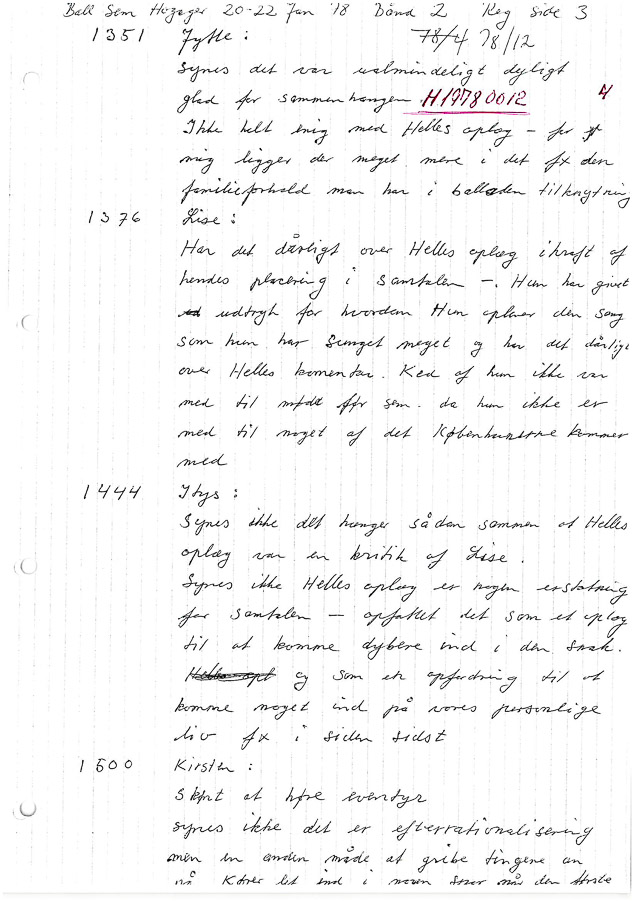 Ball Sem Hozager 20-22 Jan '78 Bånd 2 Reg side 3
1351 Jytte : 78/4 78/12
Synes det var ualmindeligt dyligt
glad for sammenhængen H19780012 4
Ikke helt enig med Helles oplæg – for
mig ligger der meget mere i det fx den
familieforhold man har i balladen tilknytning
1376 Lise :
Har det dårligt over Helles oplæg ikraft af
hendes placering i samtalen –. Hun har givet
udtryk for hvordan Hun oplever den sang
som hun har sunget meget og har det dårligt
over Helles komentar. Ked af hun ikke var
med til mødet før sem. da hun ikke er
med til noget af det københavnerne kommer
med
1444 Itys :
Synes ikke det hænger sådan sammen at Helles
oplæg var en kritik af Lise.
Synes ikke Helles oplæg er nogen erstatning
for samtalen – opfattet det som et oplæg
til at komme dybere ind i den snak.
og som en opfordring til at
komme noget ind på vores personlige
liv fx i siden sidst
1500 Kirsten :
Skønt at høre eventyr
synes ikke det er efterrationalisering
men en anden måde at gribe tingene an
på kører let ind i når den